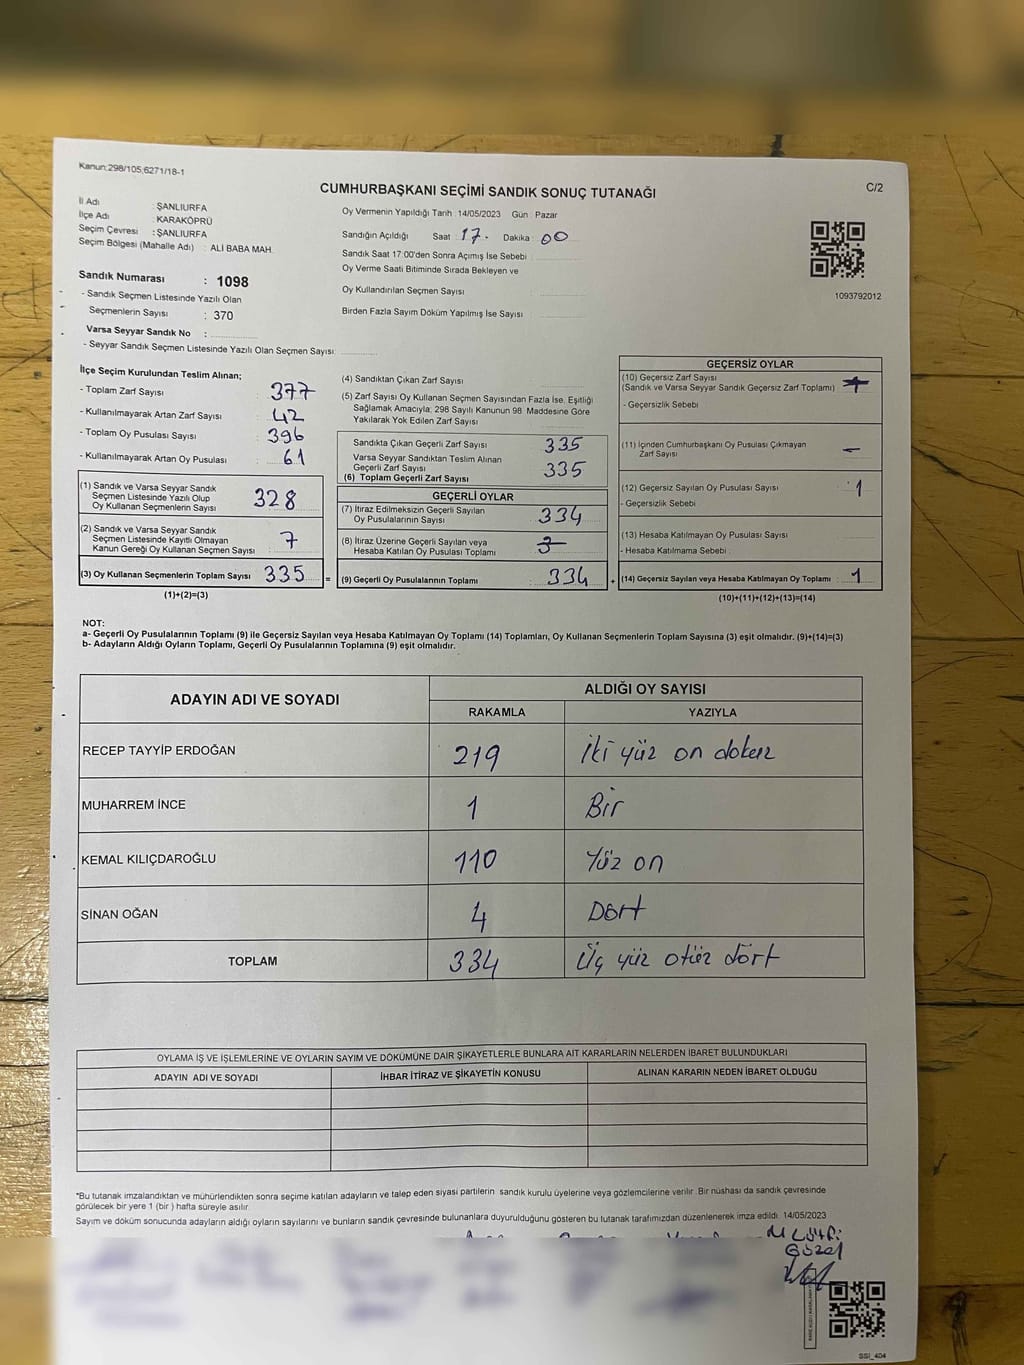 Kanun:298/105,6271/18-1
CUMHURBAŞKANI SEÇİMİ SANDIK SONUÇ TUTANAĞI
C/2
İl Adı : ŞANLIURFA
İlçe Adı : KARAKÖPRÜ
Seçim Çevresi : ŞANLIURFA
Seçim Bölgesi (Mahalle Adı) : ALİ BABA MAH.
Sandık Numarası : 1098
- Sandık Seçmen Listesinde Yazılı Olan
Seçmenlerin Sayısı : 370
Varsa Seyyar Sandık No :
- Seyyar Sandık Seçmen Listesinde Yazılı Olan Seçmen Sayısı:
Oy Vermenin Yapıldığı Tarih :14/05/2023 Gün : Pazar
Sandığın Açıldığı Saat : 17. Dakika : 00
Sandık Saat 17:00'den Sonra Açımış İse Sebebi :
Oy Verme Saati Bitiminde Sırada Bekleyen ve
Oy Kullandırılan Seçmen Sayısı
Birden Fazla Sayım Döküm Yapılmış İse Sayısı
1093792012
İlçe Seçim Kurulundan Teslim Alınan;
- Toplam Zarf Sayısı : 377
- Kullanılmayarak Artan Zarf Sayısı : 42
- Toplam Oy Pusulası Sayısı : 396
- Kullanılmayarak Artan Oy Pusulası : 61
(1) Sandık ve Varsa Seyyar Sandık
Seçmen Listesinde Yazılı Olup
Oy Kullanan Seçmenlerin Sayısı 328
(2) Sandık ve Varsa Seyyar Sandık
Seçmen Listesinde Kayıtlı Olmayan
Kanun Gereği Oy Kullanan Seçmen Sayısı 7
(3) Oy Kullanan Seçmenlerin Toplam Sayısı 335
(1)+(2)=(3)
=
(4) Sandıktan Çıkan Zarf Sayısı
(5) Zarf Sayısı Oy Kullanan Seçmen Sayısından Fazla İse, Eşitliği
Sağlamak Amacıyla; 298 Sayılı Kanunun 98. Maddesine Göre
Yakılarak Yok Edilen Zarf Sayısı
Sandıkta Çıkan Geçerli Zarf Sayısı 335
Varsa Seyyar Sandıktan Teslim Alınan
Geçerli Zarf Sayısı
(6) Toplam Geçerli Zarf Sayısı 335
GEÇERLİ OYLAR
(7) İtiraz Edilmeksizin Geçerli Sayılan
Oy Pusulalarının Sayısı 334
(8) İtiraz Üzerine Geçerli Sayılan veya
Hesaba Katılan Oy Pusulası Toplamı
(9) Geçerli Oy Pusulalarının Toplamı 334
+
GEÇERSİZ OYLAR
(10) Geçersiz Zarf Sayısı
(Sandık ve Varsa Seyyar Sandık Geçersiz Zarf Toplamı)
- Geçersizlik Sebebi
(11) İçinden Cumhurbaşkanı Oy Pusulası Çıkmayan
Zarf Sayısı —
(12) Geçersiz Sayılan Oy Pusulası Sayısı : 1
- Geçersizlik Sebebi
(13) Hesaba Katılmayan Oy Pusulası Sayısı
- Hesaba Katılmama Sebebi :
(14) Geçersiz Sayılan veya Hesaba Katılmayan Oy Toplamı : 1
(10)+(11)+(12)+(13)=(14)
NOT:
a- Geçerli Oy Pusulalarının Toplamı (9) ile Geçersiz Sayılan veya Hesaba Katılmayan Oy Toplamı (14) Toplamları, Oy Kullanan Seçmenlerin Toplam Sayısına (3) eşit olmalıdır. (9)+(14)=(3)
b- Adayların Aldığı Oyların Toplamı, Geçerli Oy Pusulalarının Toplamına (9) eşit olmalıdır.
ADAYIN ADI VE SOYADI ALDIĞI OY SAYISI
RAKAMLA YAZIYLA
RECEP TAYYİP ERDOĞAN 219 İki yüz on dokuz
MUHARREM İNCE 1 Bir
KEMAL KILIÇDAROĞLU 110 Yüz on
SİNAN OĞAN 4 Dört
TOPLAM 334 Üç yüz otuz dört
OYLAMA İŞ VE İŞLEMLERİNE VE OYLARIN SAYIM VE DÖKÜMÜNE DAİR ŞİKAYETLERLE BUNLARA AİT KARARLARIN NELERDEN İBARET BULUNDUKLARI
ADAYIN ADI VE SOYADI İHBAR İTİRAZ VE ŞİKAYETİN KONUSU ALINAN KARARIN NEDEN İBARET OLDUĞU
*Bu tutanak imzalandıktan ve mühürlendikten sonra seçime katılan adayların ve talep eden siyasi partilerin sandık kurulu üyelerine veya gözlemcilerine verilir. Bir nüshası da sandık çevresinde
görülecek bir yere 1 (bir ) hafta süreyle asılır.
Sayım ve döküm sonucunda adayların aldığı oyların sayılarını ve bunların sandık çevresinde bulunanlara duyurulduğunu gösteren bu tutanak tarafımızdan düzenlenerek imza edildi. 14/05/2023
Güzel
SSI_404